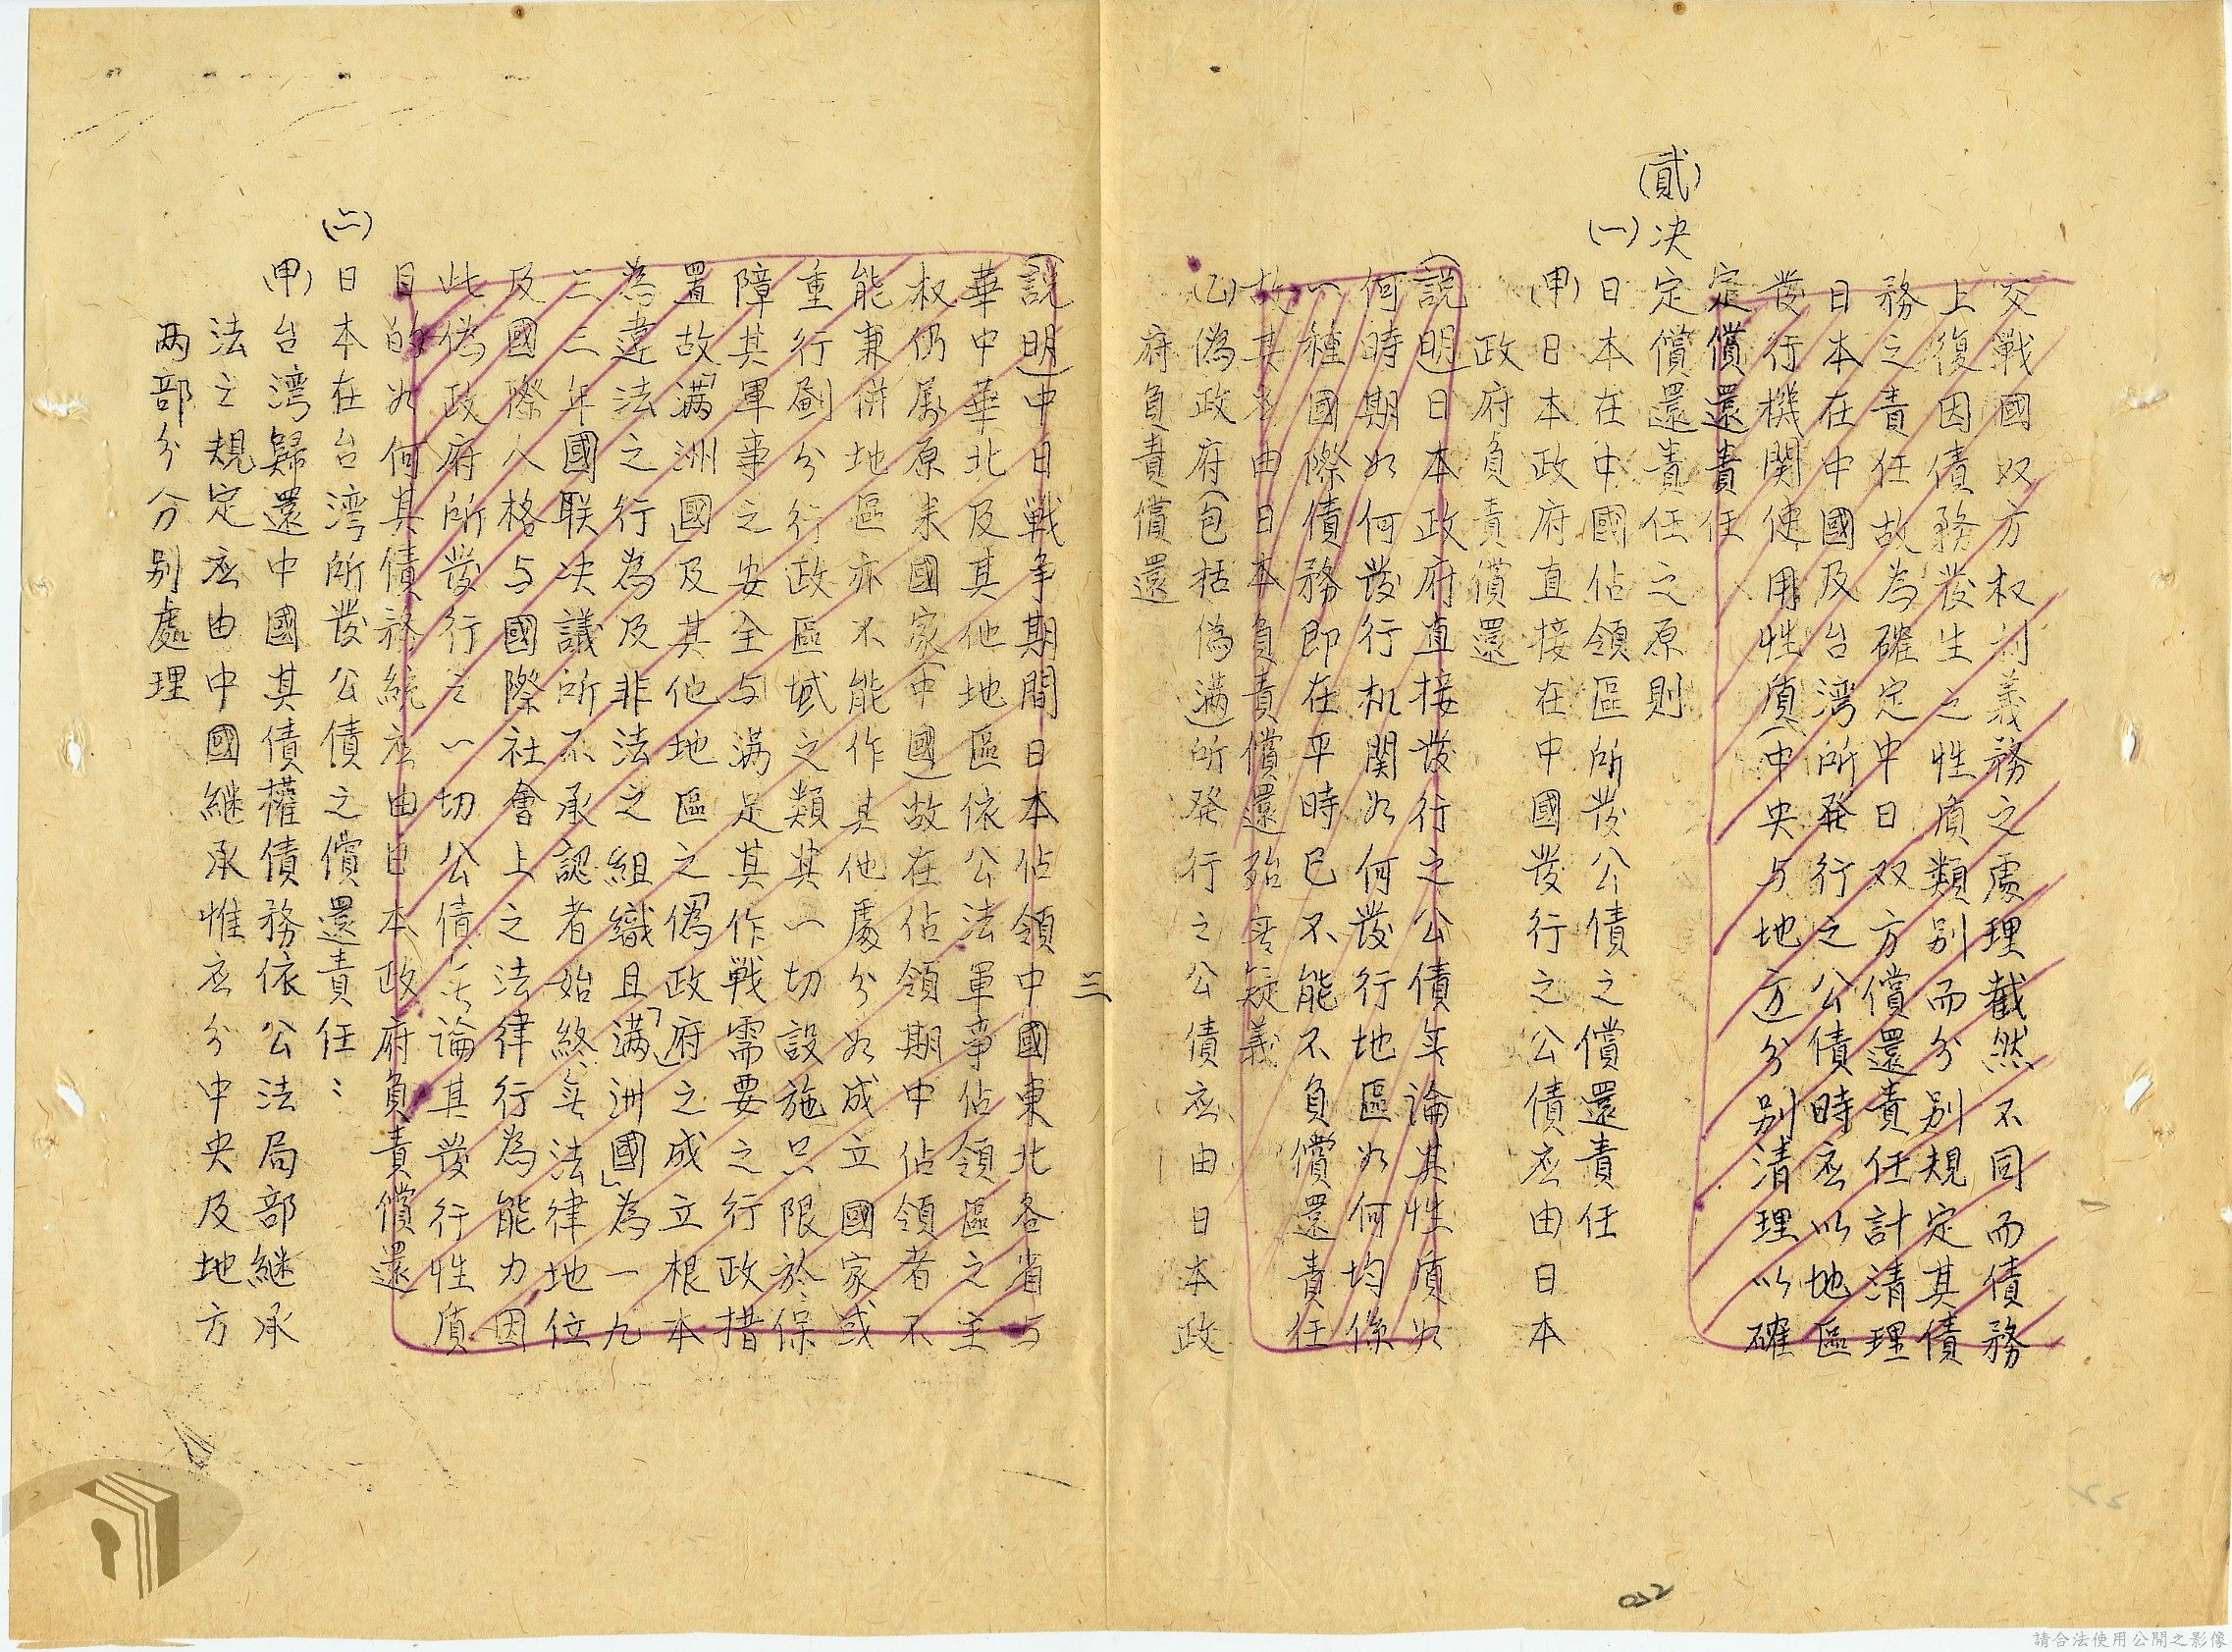 交戰國双方权利義務之處理截然不同而債務
上復因債務發生之性质類别而分别規定其債
務之責任故為確定中日双方償還責任計清理
日本在中國及台湾所発行之公債時应以地區
發行機関使用性质(中央与地方)分别清理以確
定償還責任
(貳)决定償還責任之原則
(一)日本在中國佔領區所發公債之償還責任
(甲)日本政府直接在中國發行之公債应由日本
政府負責償還
(說明)日本政府直接發行之公債無論其性质如
何時期如何發行机関如何發行地區如何均係
一種國際債務即在平時已不能不負償還責任
故其应由日本負責償還殆無疑義
(乙)偽政府(包括偽满)所発行之公債应由日本政
府負責償還
三
(說明)中日戰争期間日本佔領中國東北各省与
華中華北及其他地區依公法軍事佔領區之主
权仍屬原來國家(中國)故在佔領期中佔領者不
能兼併地區亦不能作其他處分如成立國家或
重行劃分行政區域之類其一切設施只限於保
障其軍事之安全与满足其作戰需要之行政措
置故「满洲國」及其他地區之「偽政府」之成立根本
為違法之行為及非法之組織且「满洲國」為一九
三三年國联决議所不承認者始終無法律地位
及國際人格与國際社會上之法律行為能力因
此偽政府所發行之一切公債無論其發行性质
目的如何其債務統应由日本政府負責償還
(二)日本在台湾所發公債之償還責任：
(甲)台湾歸還中國其債權債務依公法局部継承
法之規定应由中國継承惟应分中央及地方
两部分分别處理
022
請合法使用公開之影像